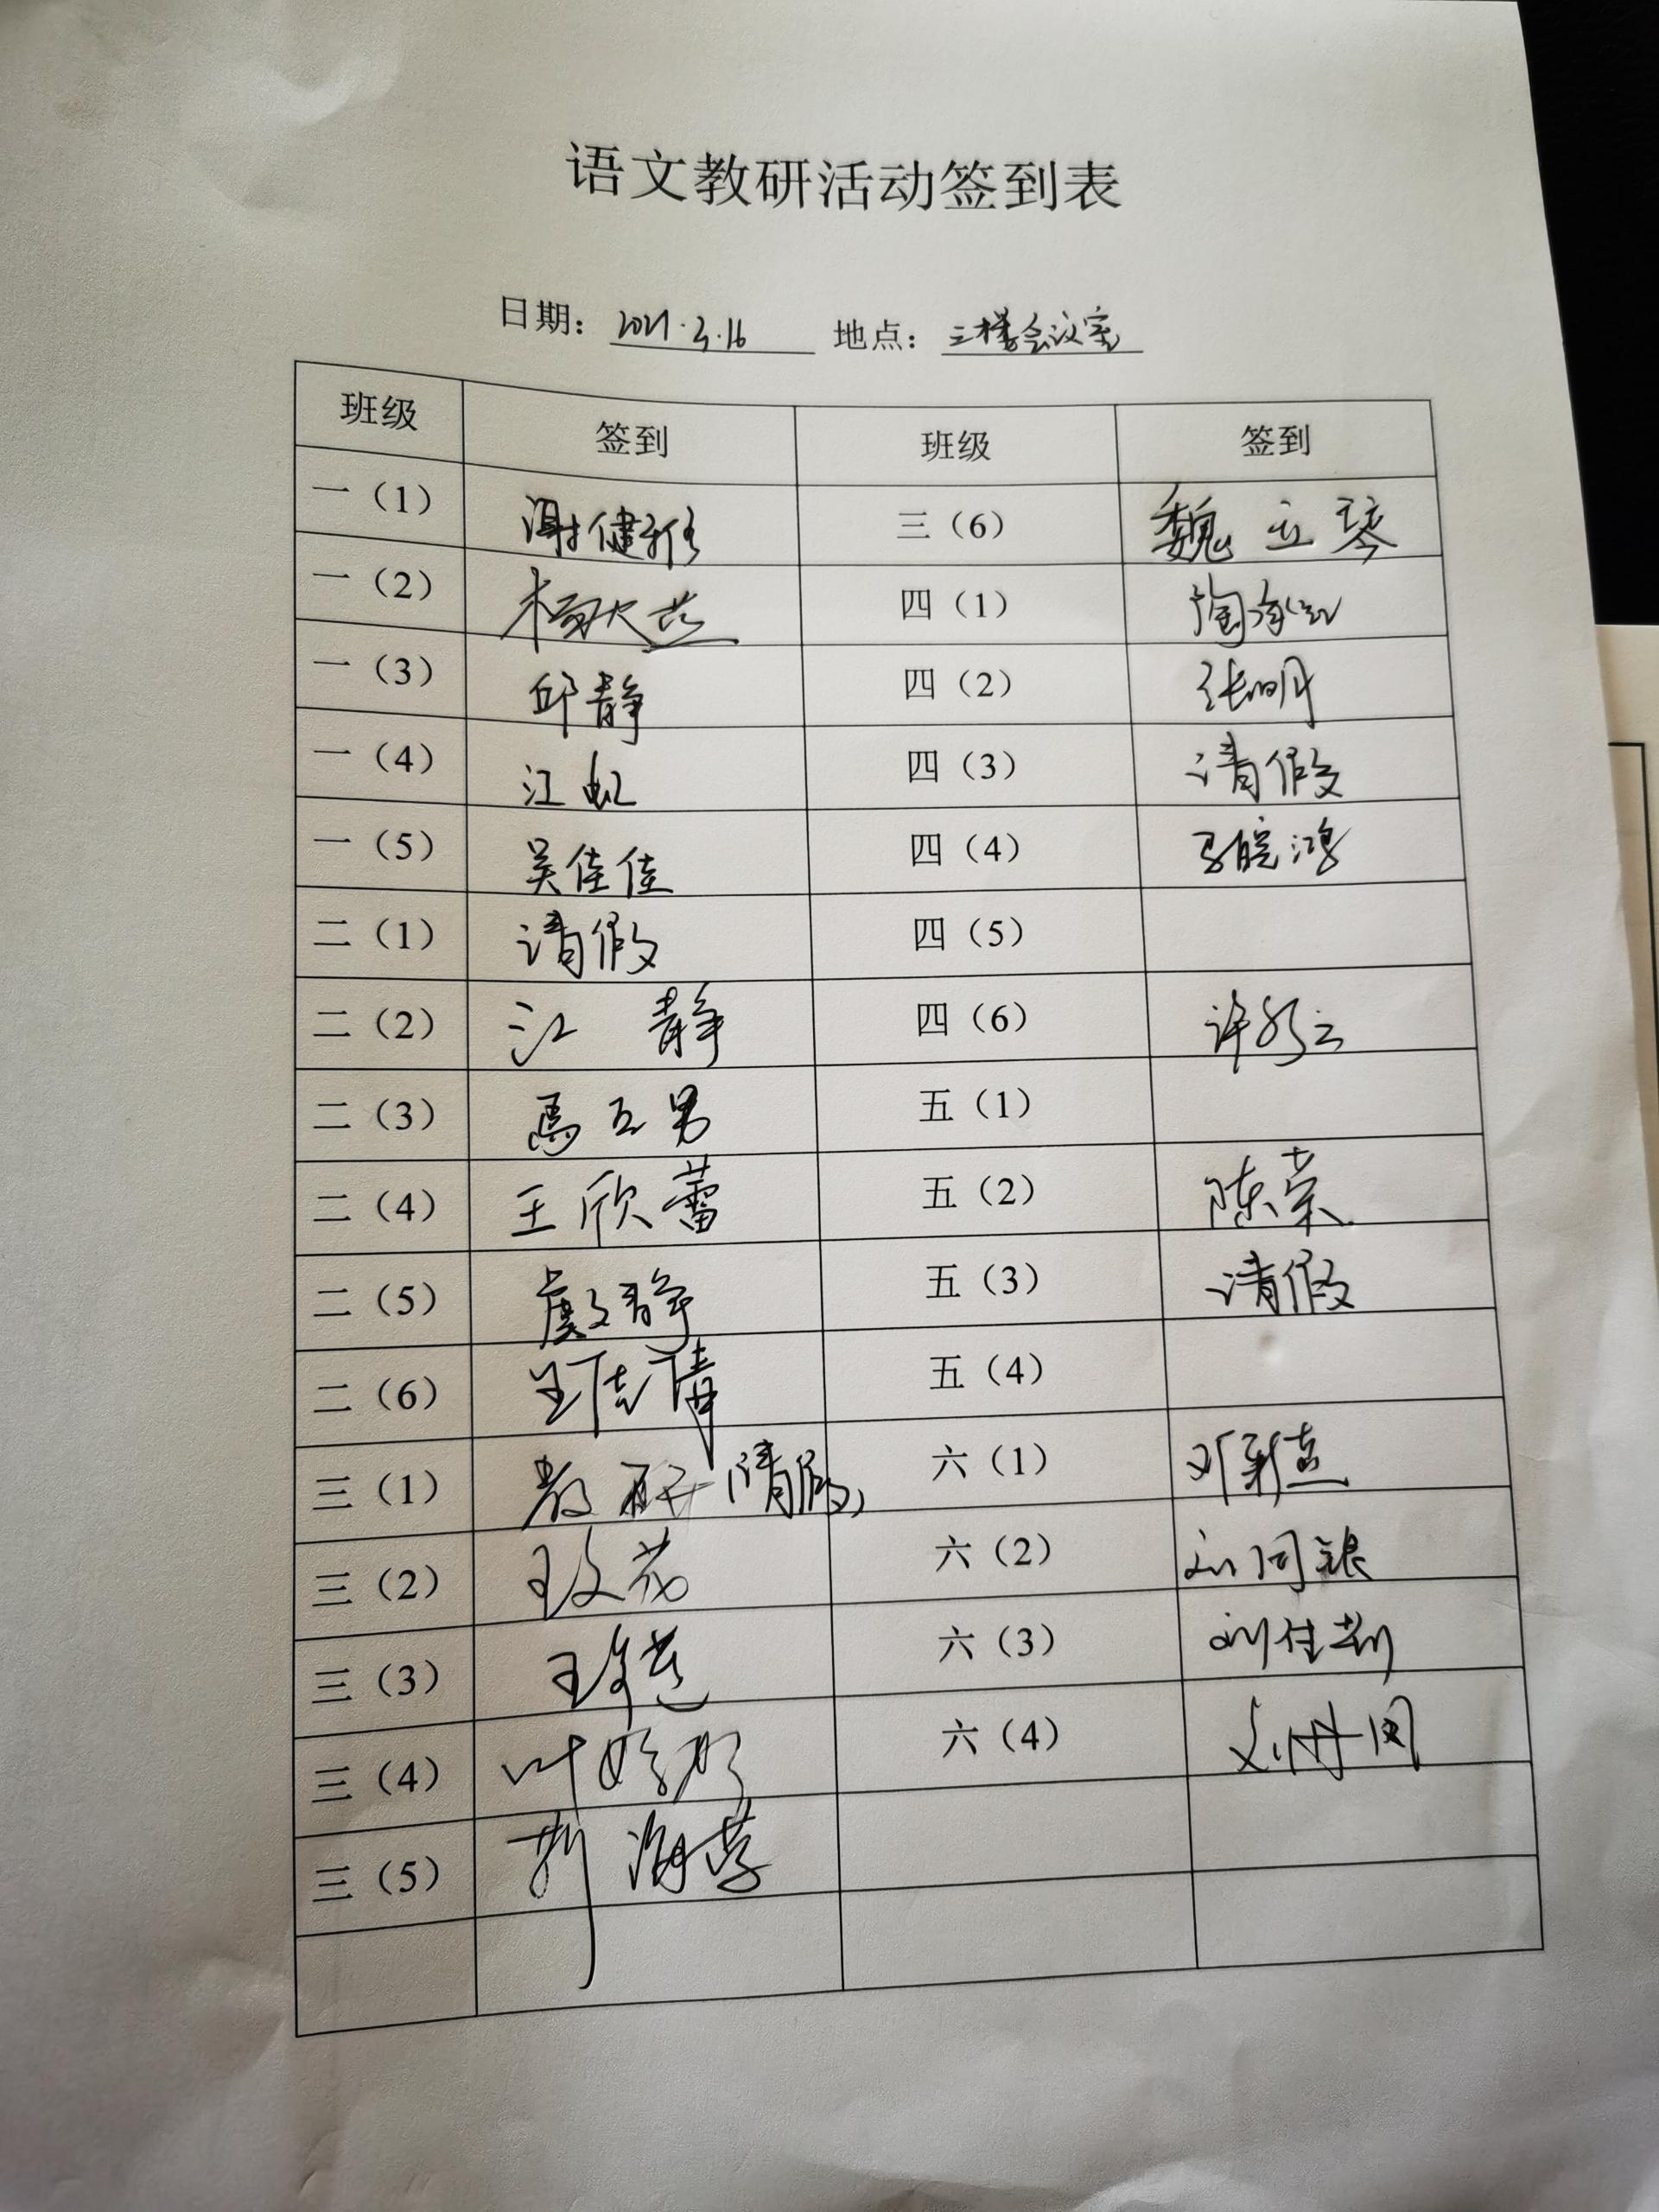 语文教研活动签到表
日期：2021.3.16 地点：三楼会议室
班级 签到 班级 签到
一（1） 谢健 三（6） 魏立琴
一（2） 杨 四（1） 陶
一（3） 邱静 四（2） 张明月
一（4） 江虹 四（3） 请假
一（5） 吴佳佳 四（4） 皖鸿
二（1） 请假 四（5）
二（2） 江静 四（6） 许
二（3） 马玉男 五（1）
二（4） 王欣蕾 五（2） 陈荣
二（5） 虞静 五（3） 请假
二（6） 王倩 五（4）
三（1） 教研请假 六（1） 邓
三（2） 王文花 六（2） 刘同银
三（3） 王 六（3） 刘佳莉
三（4） 叶婷 六（4） 刘丹
三（5） 荆海燕